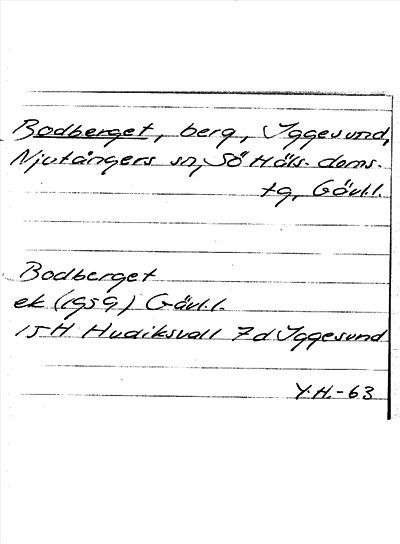 Bodberget, berg, Iggesund,
Njutångers sn, Sö Häls. doms.
tg, Gävl.l.
Bodberget
ek (1959) Gävl.l.
15H Hudiksvall 7d Iggesund
Y.H.-63